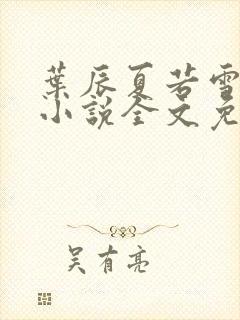 葉辰夏若雪
小說全文免
吴有亮